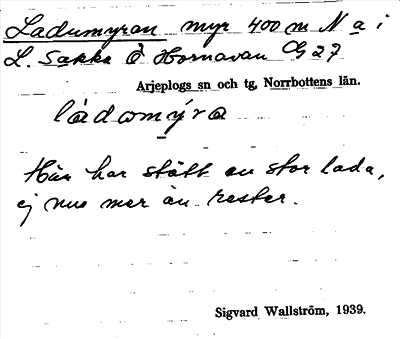 Ladumyran myr 400 m N a i
L. Sakka Ö Hornavan G 27
Arjeplogs sn och tg, Norrbottens län.
lådomýra
Här har stått en stor lada,
ej nu mer än rester.
Sigvard Wallström, 1939.